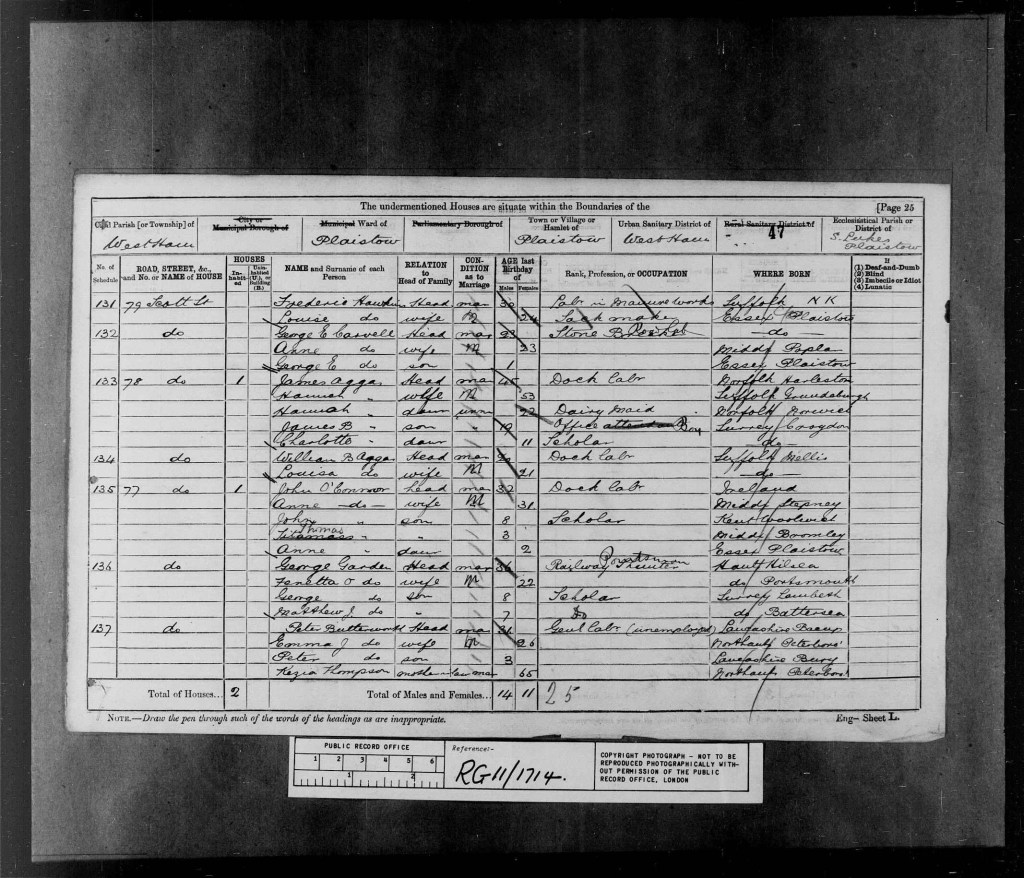 The undermentioned Houses are situate within the Boundaries of the [Page 25
Civil Parish [or Township] of City or Municipal Borough of Municipal Ward of Parliamentary Borough of Town or Village or Hamlet of Urban Sanitary District of Rural Sanitary District of Ecclesiastical Parish or District of
West Ham Plaistow Plaistow West Ham 47 S. Lukes Plaistow
No. of Schedule ROAD, STREET, &c., and No. or NAME of HOUSE HOUSES Inhabited Uninhabited (U.), or Building (B.) NAME and Surname of each Person RELATION to Head of Family CONDITION as to Marriage AGE last Birthday of Males Females Rank, Profession, or OCCUPATION WHERE BORN If (1) Deaf-and-Dumb (2) Blind (3) Imbecile or Idiot (4) Lunatic
131 79 Scott St Frederic Hawkins Head mar 30 Labr in Manure works Suffolk N K
Louise do wife M 24 Sack maker Essex Plaistow
132 do George E Carvell Head mar 23 Stone do
Anne do wife M 23 Middx Poplar
George E do son 1 Essex Plaistow
133 78 do 1 James Aggas Head mar 45 Dock labr Norfolk Harleston
Hannah " wife M 53 Suffolk Grundisburgh
Hannah " daur unm 22 Dairy Maid Norfolk Norwich
James B " son 19 Office attendan Boy Surrey Croydon
Charlotte " daur 11 Scholar do
134 do William B Aggas Head mar Dock labr Suffolk Mellis
Louisa do wife M 21 do
135 77 do 1 John O'Connor head mar 32 Dock labr Ireland
Anne do wife M 31 Middx Stepney
John " son 8 Scholar Kent Woolwich
Thomas " " 3 Middx Bromley
Anne " daur 2 Essex Plaistow
136 do George Garden Head mar 36 Railway Hants Hilsea
Fenetta O do wife M 22 do Portsmouth
George do son 8 Scholar Surrey Lambeth
Matthew J do " 7 Do do Battersea
137 do Peter Butterworth Head mar 31 Genl labr (unemployed) Lancashire Bacup
Emma J do wife M 26 Northants Peterboro'
Peter do son 3 Lancashire Bury
Kezia Thompson mother in law mar 65 Northants Peterboro'
Total of Houses... 2 Total of Males and Females... 14 11 25
NOTE.—Draw the pen through such of the words of the headings as are inappropriate. Eng—Sheet L.
PUBLIC RECORD OFFICE
1 2 3 4 5 6
1 2
Reference:-
RG11/1714.
COPYRIGHT PHOTOGRAPH - NOT TO BE
REPRODUCED PHOTOGRAPHICALLY WITH-
OUT PERMISSION OF THE PUBLIC
RECORD OFFICE, LONDON